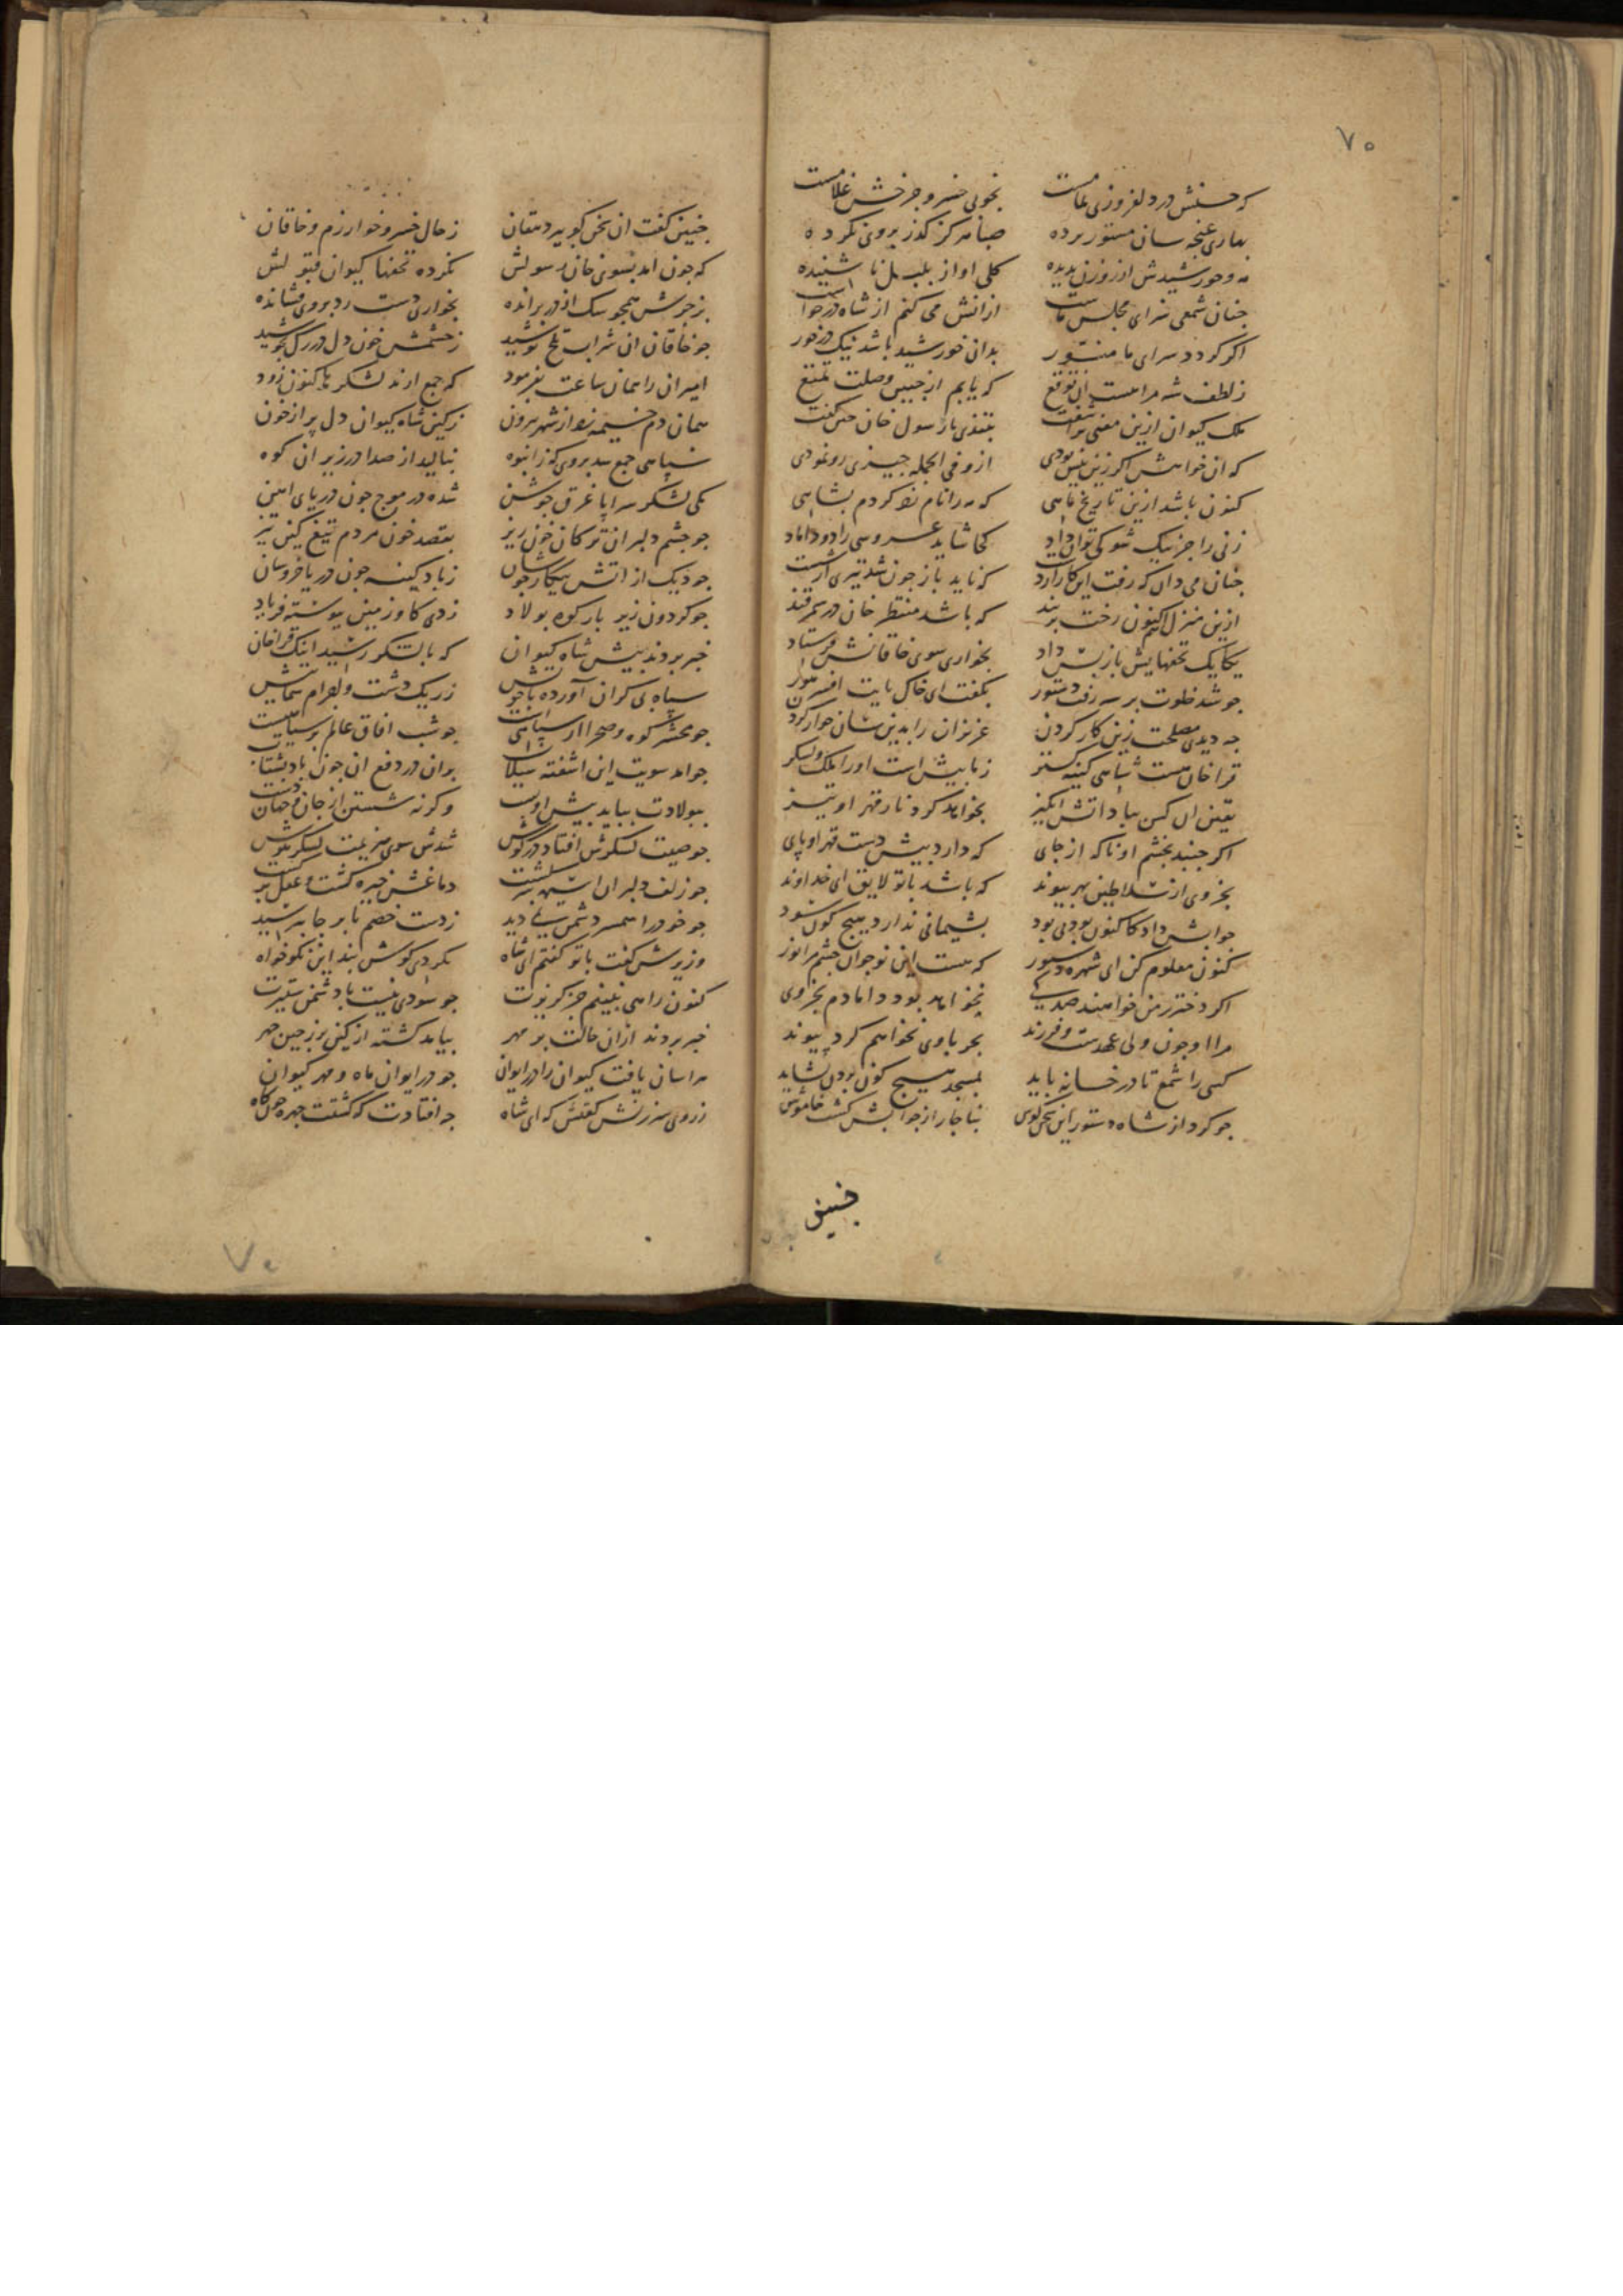 ۷۵
که حسنش در دلفروزی تمامست بخوبی خسرو جرخش غلامست
بهاری غنجه سان مستور برده صبا هرکز کذر بروی نکرده
مه و خورشیدش از روزن ندیده کلی اواز بلبل نا شنیده
جنان شمعی سزای مجلس ماست ازانش می کنم از شاه درخواست
اکر کردد سرای ما منور بدان خورشید باشد نیک درخور
زلطف شه مرا هست ان توقع که یابم از جنین وصلت تمتع
ملک کیوان ازین معنی براشفت بتندی با رسول خان جنین کفت
که ان خواهش اکر زین بیش بودی ازو فی الجمله جیزی رو نمودی
کنون باشد ازین تاریخ ماهی که مه را نام زد کردم بشاهی
زنی را جز بیک شو کی توان داد کجا شاید عروسی را دو داماد
جنان می دان که رفت این کار از دست که ناید باز جون شد تیری از شست
ازین منزل کنون رخت بربند که باشد منتظر خان در سمرقند
یکایک تحفهایش باز بس داد بخواری سوی خاقانش فرستاد
جو شد خلوت برِ شه رفت دستور بکفت ای خاک بایت افسر
جه دیدی مصلحت زین کار کردن عزیزان را بدین سان خوار کردن
قراخان هست شاهی کینه کستر زما بیش است اورا ملک و لشکر
یقین ان کس بباد اتش انکیز بخواهد کرد نار قهر او تیز
اکر جنبد بخشم او ناکه از جای که دارد بیش دست قهر او پای
بخر وی از سلاطین بهر بیوند که باشد با تو لایق ای خداوند
جوابش داد کاکنون بودنی بود بشیمانی ندارد هیج کون سود
کنون معلوم کن ای شهره دستور که هست این نوجوان جشم مرا نور
اکر دختر زمن خواهند صد پی نخواهد بود دامادم بجز وی
مرا او جون ولی عهدست و فرزند بجز با وی نخواهم کرد پیوند
کسی را شمع تا در خانه باید بمسجد هیج کون بردن نشاید
جو کرد از شاه دستور این سخن کوش بناجار از جوابش کشت خاموش
جنین
جنین کفت ان سخن کوی بیر دهقان زحال خسرو خوارزم و خاقان
که جون امد بسوی خان رسولش نکرده تحفها کیوان قبولش
بزجرش همجو سک از در برانده بخواری دست رد بروی فشانده
جو خاقان ان شراب تلخ نوشید زخشمش خون دل در رک بجوشید
امیران را همان ساعت بفرمود که جمع ارند لشکر تا کنون زود
همان دم خیمه زد از شهر بیرون زکین شاه کیوان دل پر از خون
سپاهی جمع شد بروی کز انبوه بنالید از صدا در زیر ان کوه
یکی لشکر سراپا غرق جوشن شده در موج جون دریای اهن
جو جشم دلبران ترکان خون ریز بقصد خون مردم تیغ کین تیز
جو دیک از اتش پیکار جوشان زباد کینه جون دریا خروشان
جو کردون زیر بار کوه بولاد زدی کاو زمین پیوسته فریاد
خبر بردند بیش شاه کیوان که با لشکر رسید اینک قراخان
سپاه بی کران آورده با خویش زریک دشت و اجرام سما بیش
جو محشر کوه و صحرا از سپاهیست جو شب افاق عالم بر سیاهیست
جو امد سویت این اشفته سیلاب بران در دفع ان جون باد بشتاب
ببولادت بباید بیش او بست وکرنه شستن از جان و جهان دست
جو صیت لشکرش افتاد در کوش شدش سوی هزیمت لشکر هوش
جو زلف دلبران اشفته سر کشت دماغش خیره کشت و عقل بر کشت
جو خود را همسر دشمن نمی دید زدست خصم بابرجا بترسید
وزیرش کفت با تو کفتم ای شاه نکردی کوش بند این نکوخواه
کنون راهی نبینم جز کریزت جو سودی نیست با دشمن ستیزت
خبر بردند ازان حالت بر مهر بیامد کشته از کین بر ز جین جهر
هراسان یافت کیوان را در ایوان جو در ایوان ماه و مهر کیوان
زروی سرزنش کفتش که ای شاه جه افتادت که کشتت جهره جون کاه
۷۵